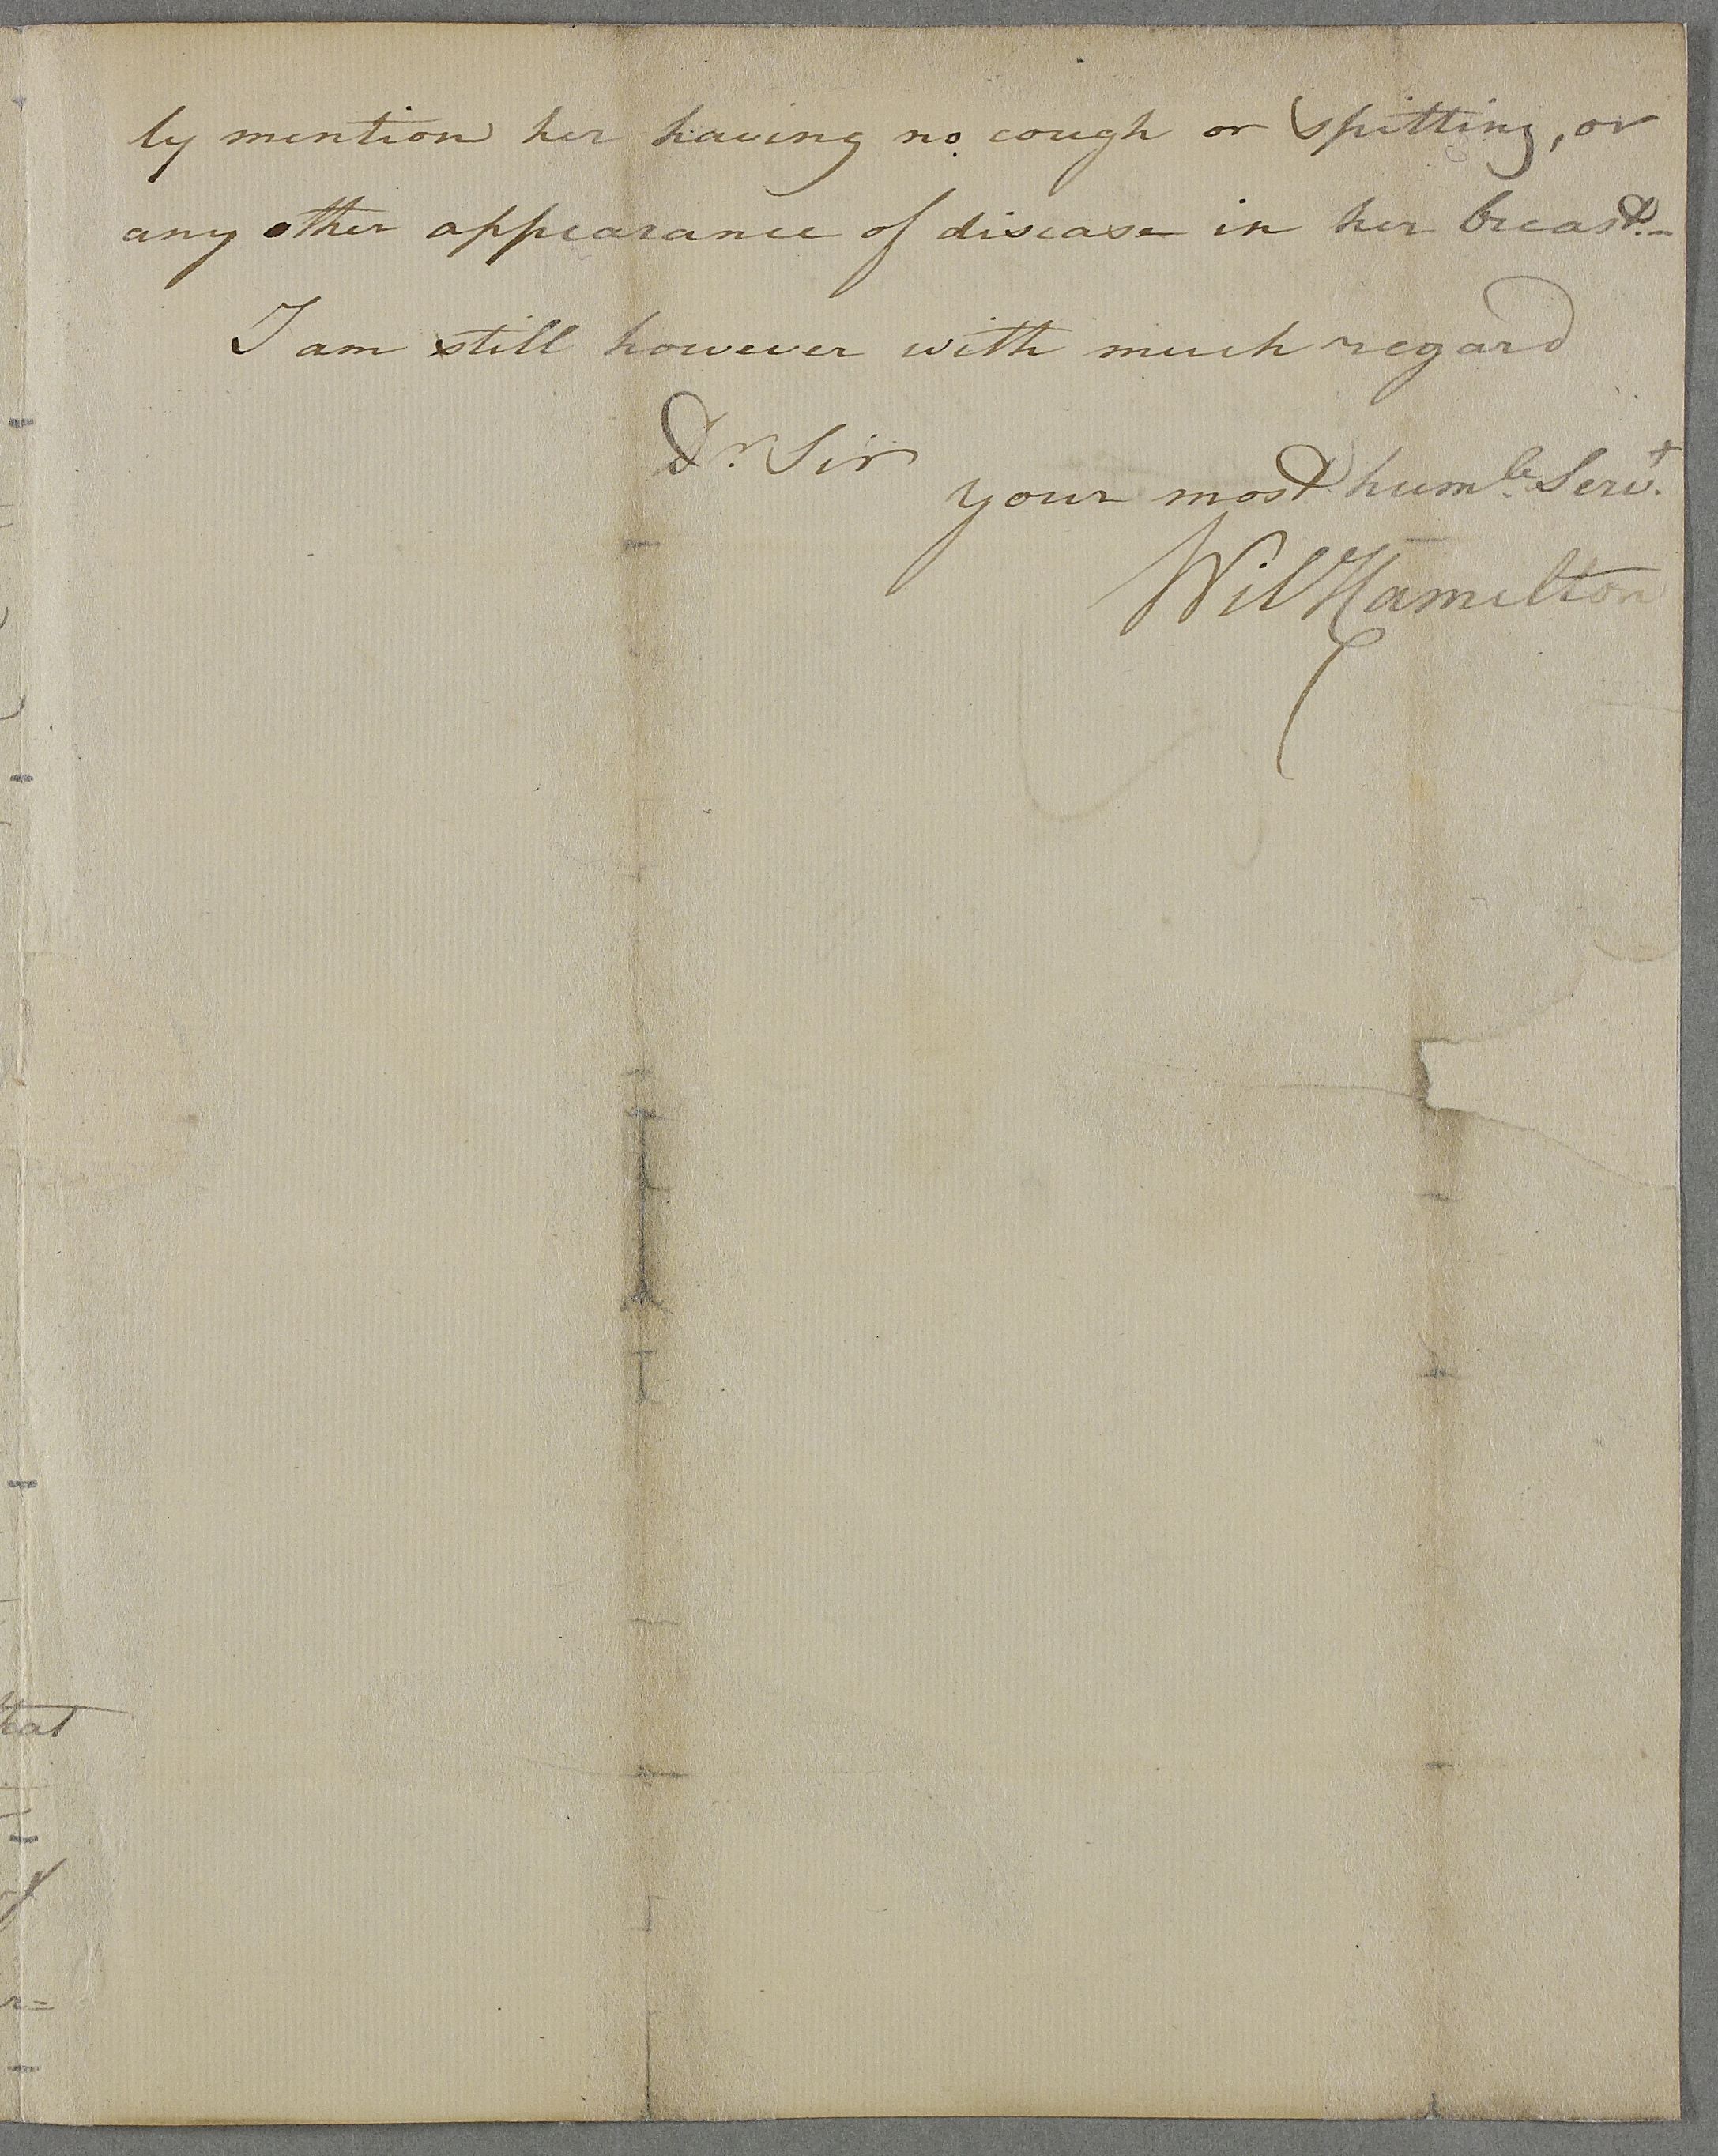 ly mention her having no cough or spitting, or
any other appearance of disease in her breast.-
I am still however with much regard
Dr. Sir
your most humle. Servt.
Wil Hamilton
that